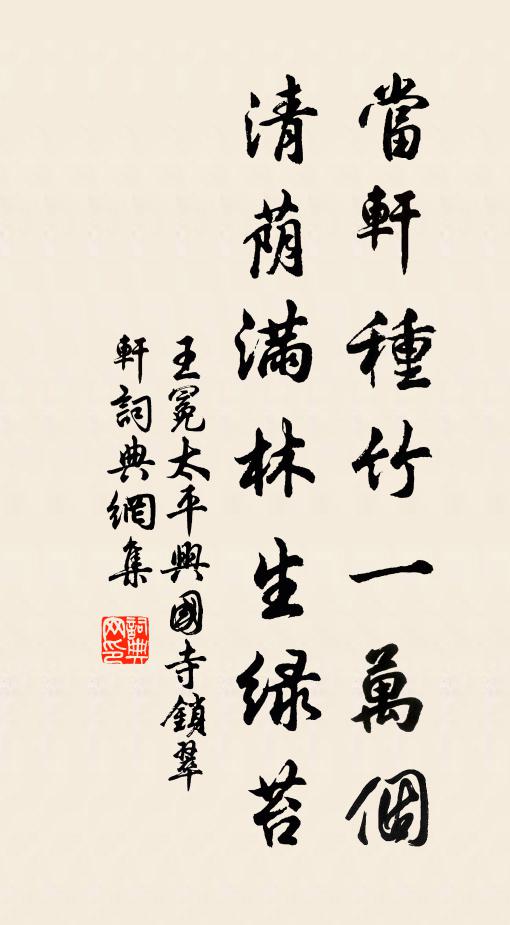 當軒種竹一萬個
清蔭滿林生緑苔
王冕太平興國寺鎖翠
軒詞典網集
詞典网印